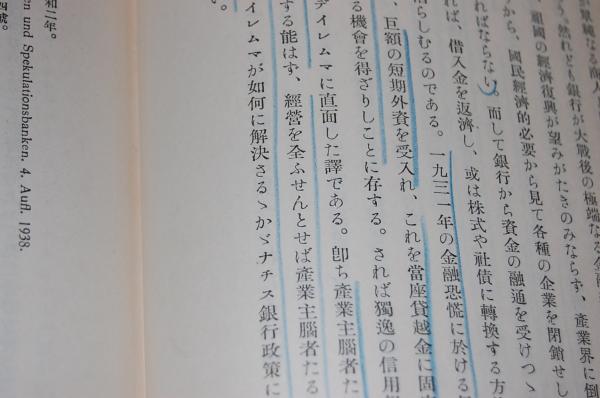 が單純なる商人
う。然れども銀行が大戰後の極端なる金
、祖國の經濟復興が望みがたきのみならず、産業界に倒
から、國民經濟的必要から見て各種の企業を閉鎖せし
ればならない。而して銀行から資金の融通を受けつゝ
れば、借入金を返濟し、或は株式や社債に轉換する方
落らしむるのである。一九三一年の金融恐慌に於ける
、巨額の短期外資を受入れ、これを當座貸越金に固
る機會を得ざりしことに存する。されば獨逸の信用
デイレムマに直面した譯である。卽ち産業主腦者た
する能はず、經營を全ふせんとせば産業主腦者たる
イレムマが如何に解決さるゝかゞナチス銀行政策に
い。
和二年。
en und Spekulationsbanken. 4. Aufl. 1938.
四號。